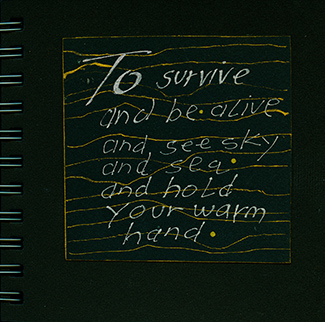 To survive
and be alive
and see sky
and sea.
and hold
your warm
hand.